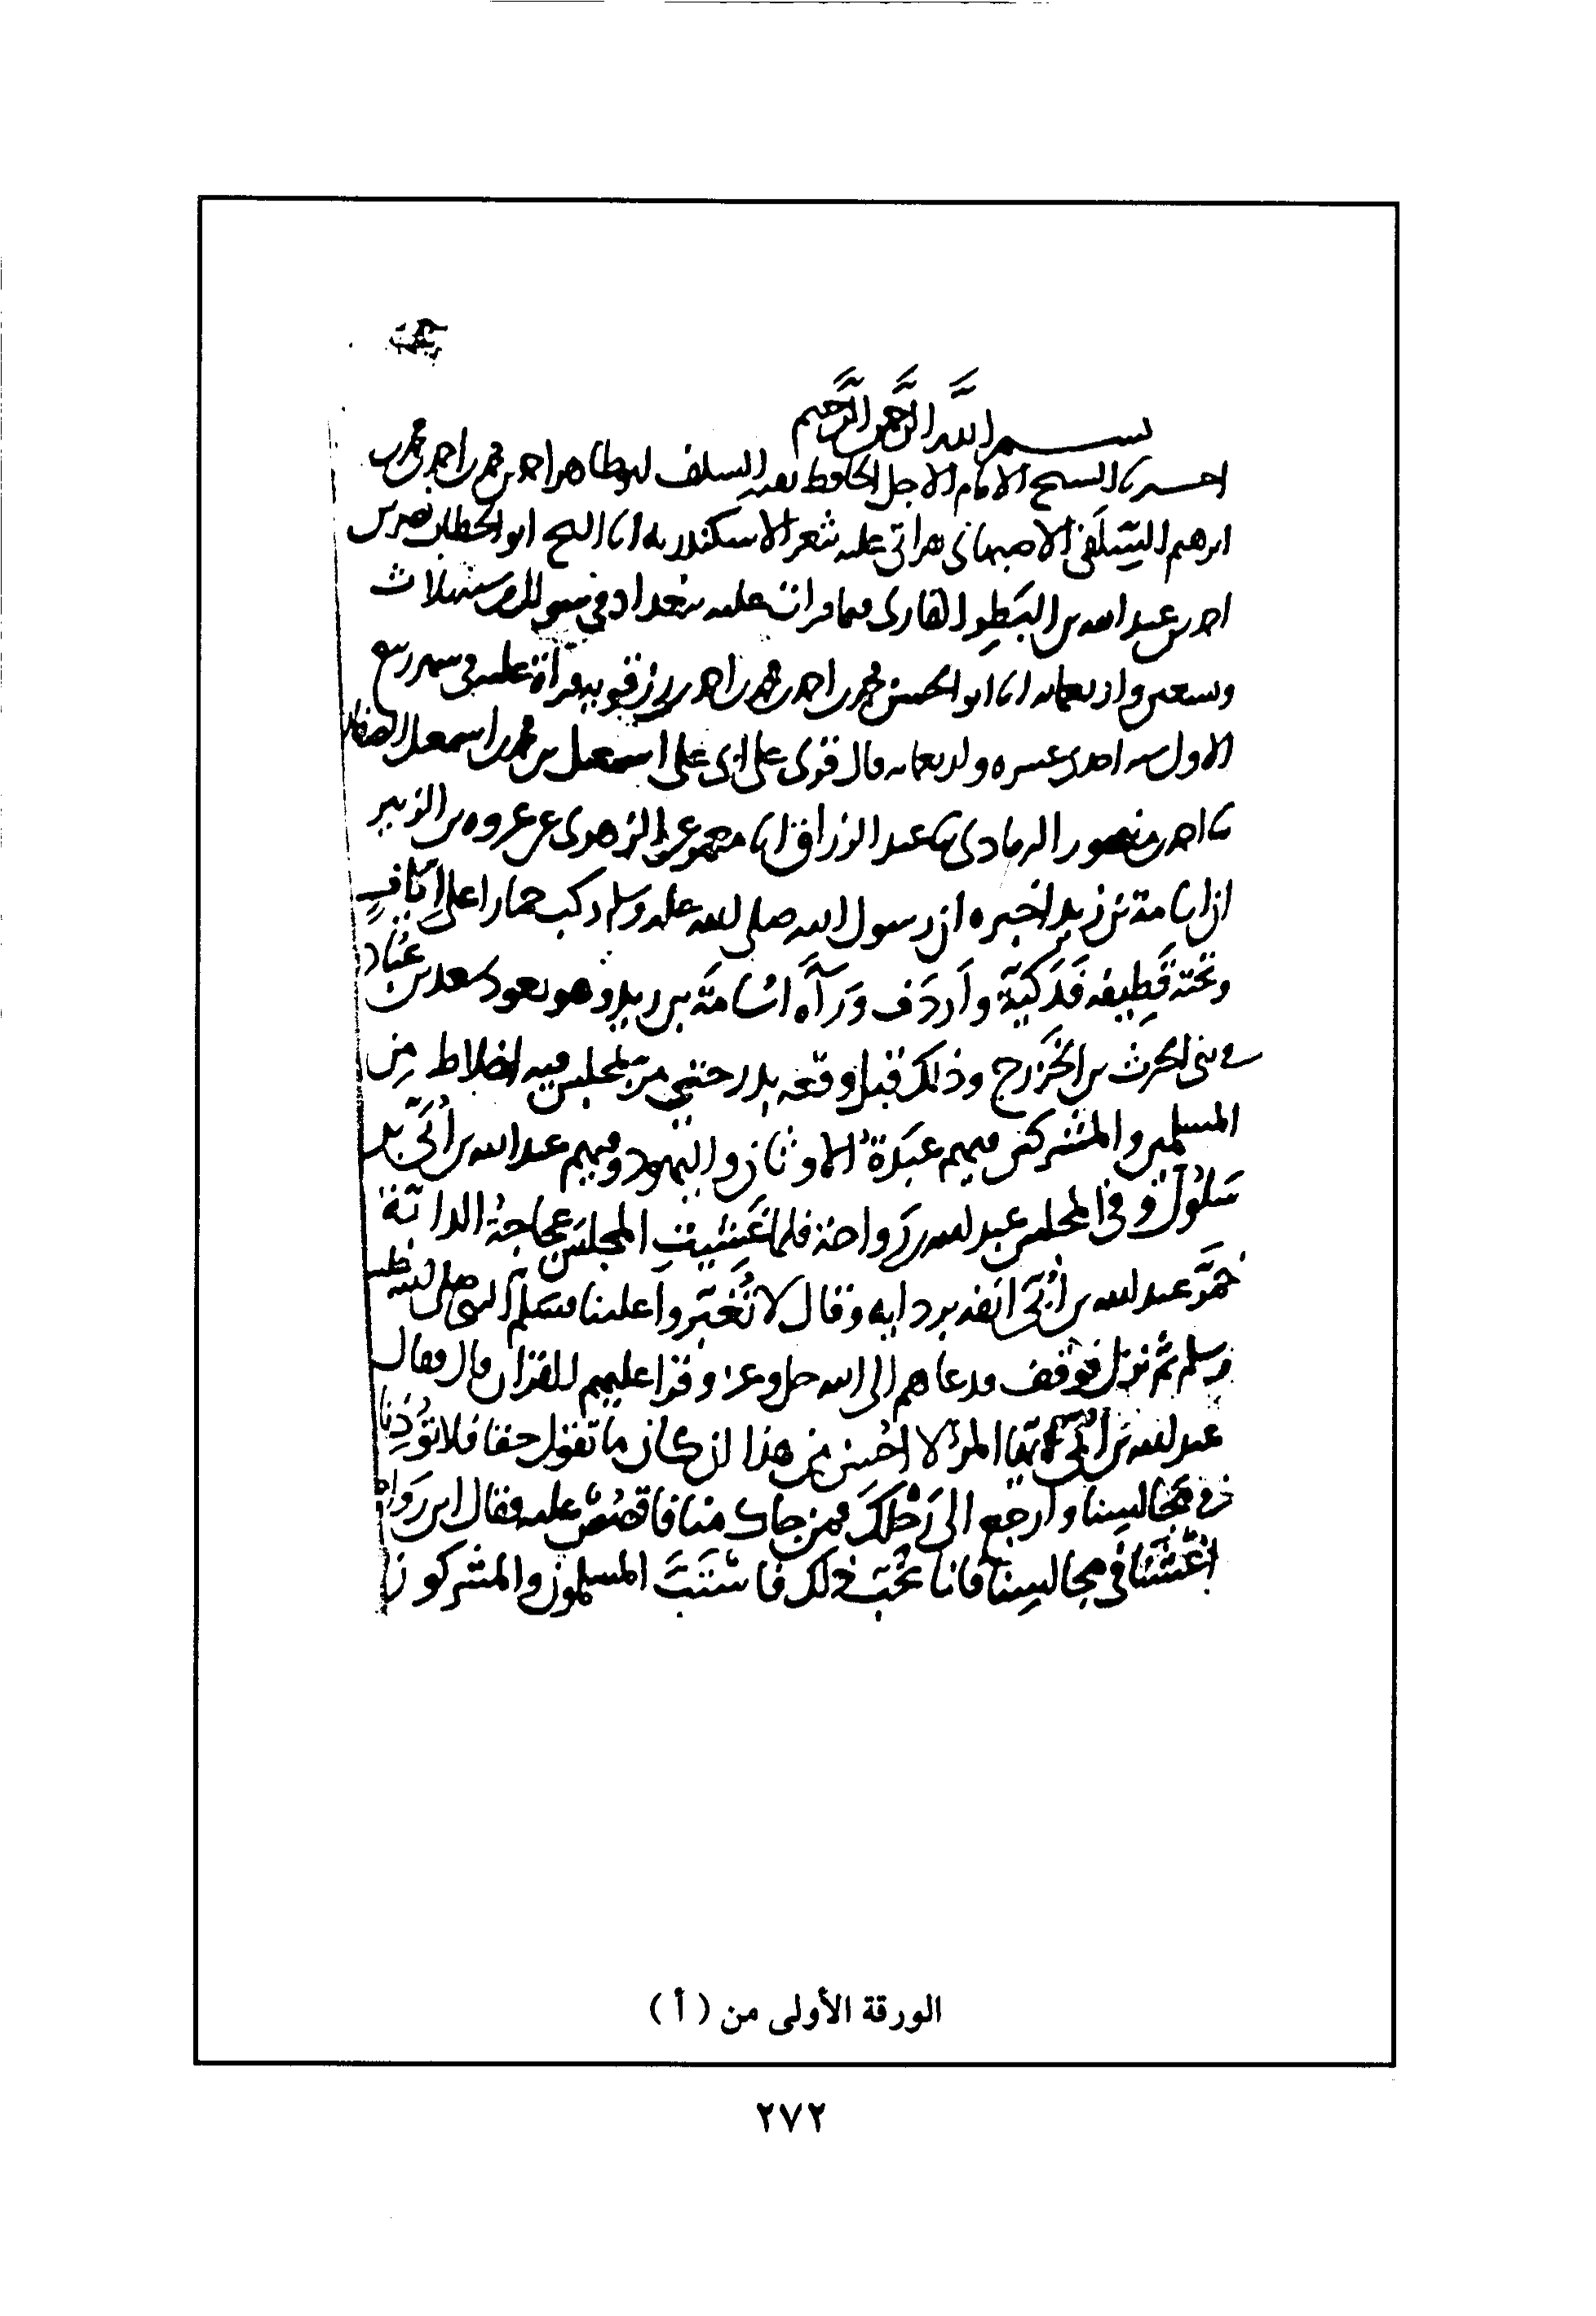 بسم الله الرَّحمن الرَّحيم
الشيخ الامام الاجل الحافظ بقيه السلف ابو طاهر احمد بن محمد بن احمد بن محمد بن
ابرهيم السِّلَفي الاصبهاني قراتي عليه بثغر الاسكندريه انا الشيخ ابو الخطاب نصر بن
احمد بن عبد الله بن البَطِر القاري فيما قرات عليه ببغداد في شوال من سنه ثلاث
وتسعين واربعمايه انا ابو الحسن محمد بن احمد بن محمد بن احمد بن رزقويه قرآة عليه في شهر ربيع
الاول سنه احدى عشره واربعمايه قال قرئ على ابي علي اسمعيل بن محمد بن اسمعيل الصفار
ثنا احمد بن منصور الرمادي ثنا عبد الرزاق انا معمر عن الزهري عن عروه بن الزبير
ان اسامة بن زيد اخبره ان رسول الله صلى الله عليه وسلم ركب حمارا على اِكافٍ
وتحته قَطِيفه فَدَكيَّة وأَردَف وَرَآَه اسُامَة بن زيد وهو يعود سعد بن عُبَاد
ه في بني الحرث بن الخَزرج وذلك قبل وقعه بدر حتى مرّ بمجلس فيه اخلاط مِن
المسلمين والمشركين فيهم عَبَدَةُ الاوثان واليهود وفيهم عبد الله بن أُبَيّ بن
سَلُولَ وفي المجلس عبد الله بن رَواحَة فلما غَشِيَتِ المجلسَ عَجاجةُ الدابّة
خَمَّرَ عبد الله بن أُبَيّ انفه بردايه وقال لا تُغَبِّروا علينا فسَلم النبي صلى الله عليه
وسلم ثم نزل فوقف فدعاهم الى الله جل وعز وقرا عليهم القران قال فقال
عبد الله بن أُبَيّ ايّها المرؤ لا احْسن من هذا ان كان ما تقول حقا فلا تُوذِنا
في مَجالسِنا وارْجع الى رَحْلكَ فمن جاك منا فاقصُصْ عليه فقال ابن رَواحه
اغْشَنَا في مجالسِنا فانا نُحِبّ ذلك فاستَبَّ المسلمون والمشركون
الورقة الأولى من ( أ )
٢٧٢